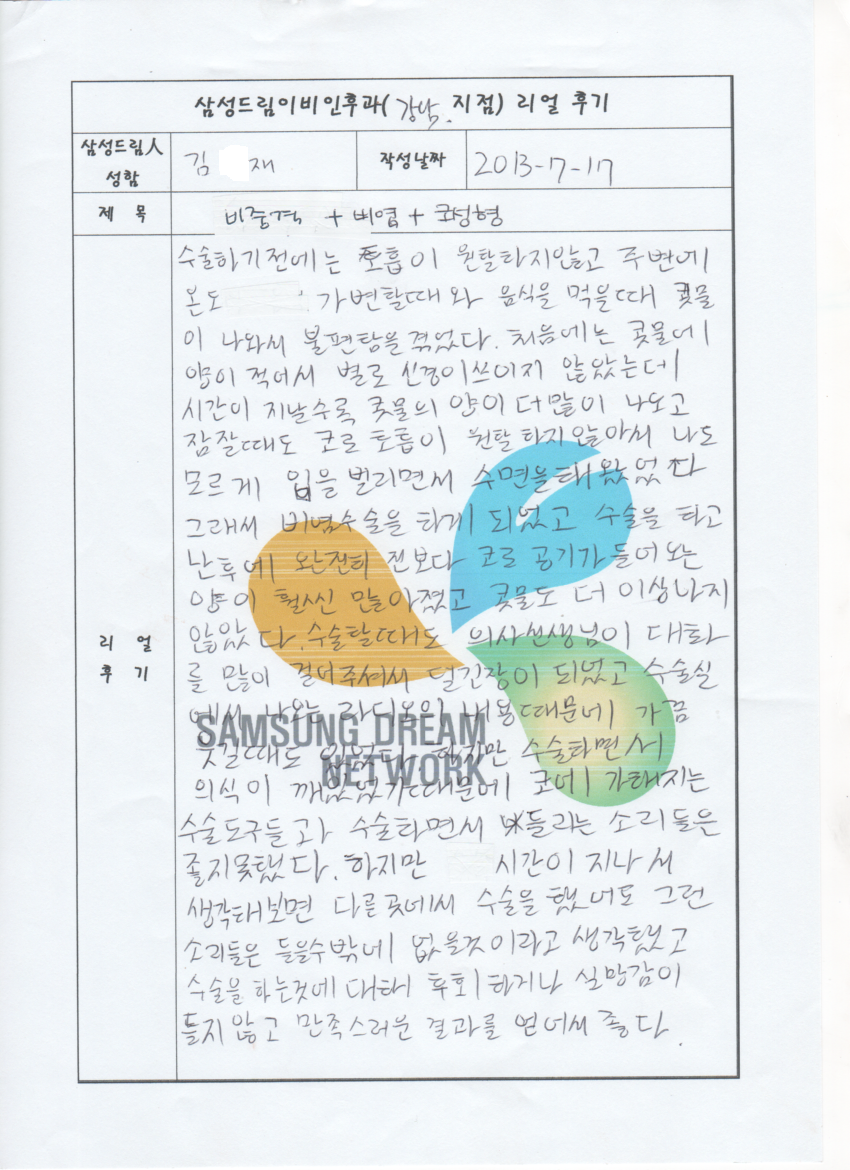 삼성드림이비인후과(강남.지점) 리얼 후기
삼성드림人 성함
김 재
작성날짜
2013-7-17
제 목
비중격 + 비염 + 코성형
리 얼 후 기
수술하기전에는 호흡이 원할하지않고 주변에
온도 가변할때와 음식을 먹을때 콧물
이 나와서 불편함을 겪었다. 처음에는 콧물에
양이 적어서 별로 신경이쓰이지 않았는데
시간이 지날수록 콧물의 양이 더많이 나오고
잠잘때도 코로 호흡이 원할하지않아서 나도
모르게 입을 벌리면서 수면을해왔었다
그래서 비염수술을 하게 되었고 수술을 하고
난후에 완전히 전보다 코로 공기가 들어오는
양이 훨신 많아졌고 콧물도 더 이상나지
않았다. 수술할때도 의사선생님이 대화
를 많이 걸어주셔서 덜긴장이 되었고 수술실
에서 나오는 라디오의 내용때문에 가끔
웃길때도 있었다. 하지만 수술하면서
의식이 깨있었기때문에 코에 가해지는
수술도구들과 수술하면서 들리는 소리들은
좋지못했다. 하지만 시간이 지나서
생각해보면 다른곳에서 수술을 했어도 그런
소리들은 들을수밖에 없을것이라고 생각했고
수술을 하는것에 대해 후회하거나 실망감이
들지않고 만족스러운 결과를 얻어서 좋다.
SAMSUNG DREAM
NETWORK